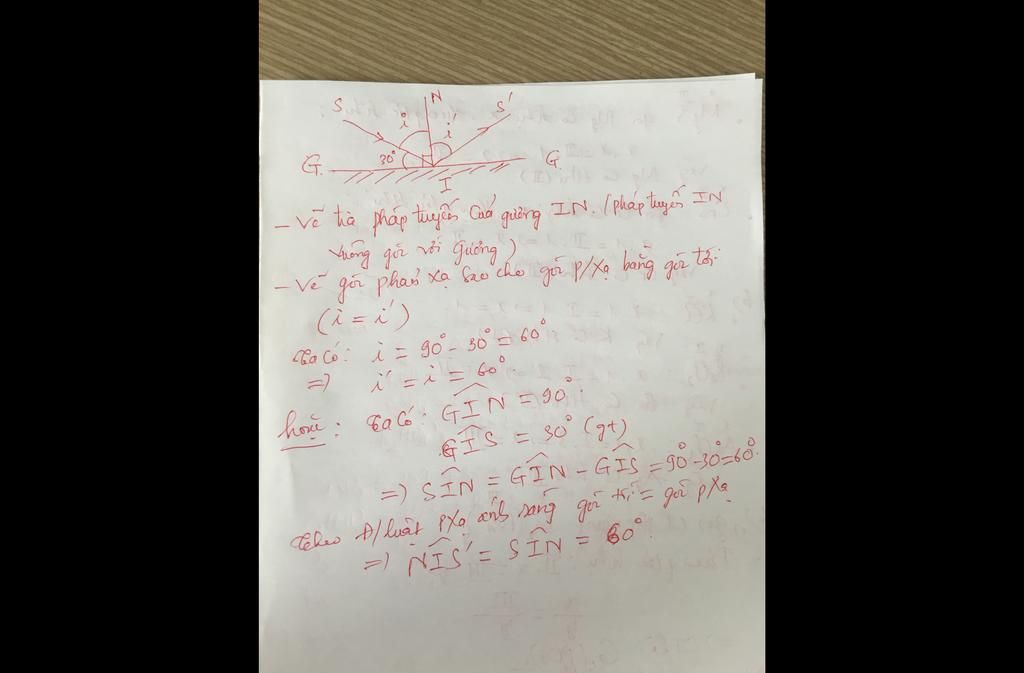 S N S'
i i'
G 30° G
I
- Vẽ tia pháp tuyến của gương IN. (pháp tuyến IN
vuông góc với gương)
- Vẽ góc phản xạ sao cho góc p/xạ bằng góc tới
(i = i')
Ta có: i = 90° - 30° = 60°
=) i' = i = 60°
hoặc: Ta có: GIN = 90°
GIS = 30° (gt)
=) SIN = GIN - GIS = 90° - 30° = 60°
Theo đ/luật pxạ ánh sáng góc tới = góc pxạ
=) NIS' = SIN = 60°.